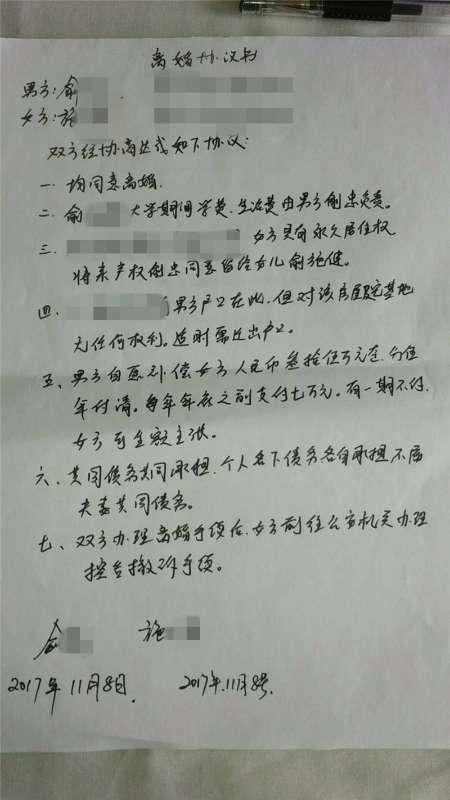 离婚协议书
男方:俞
女方:施
双方经协商达成如下协议:
一、均同意离婚.
二、俞 大学期间学费、生活费由男方俞忠负责。
三、 女方具有永久居住权
将来产权俞忠同意留给女儿俞施健。
四、 男方户口在此,但对该房屋宅基地
无任何权利。适时需迁出户口。
五、男方自愿补偿女方人民币叁拾伍万元正,分伍
年付清。每年年底之前支付七万元。有一期不付,
女方可全额主张。
六、共同债务共同承担,个人名下债务各自承担不属
夫妻共同债务。
七、双方办理离婚手续后,女方前往公安机关办理
控告撤诉手续。
俞 施
2017年11月8日. 2017年.11月8号.